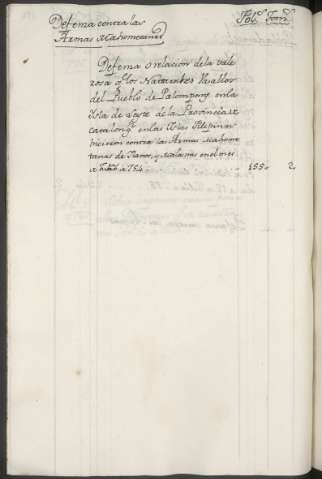 Defensa contra las
Armas Mahometanas
Fol.s Tom.s
Defensa o relacion de la vale
rosa q.e los Naturales Vasallos
del Pueblo de Palompong en la
Isla de Leyte de la Provincia de
Catalonga en las Yslas Filipinas
hicieron contra las Armas Mahome
tanas de Ylanos, y Malanaos en el mes
a 1754 155. 2.